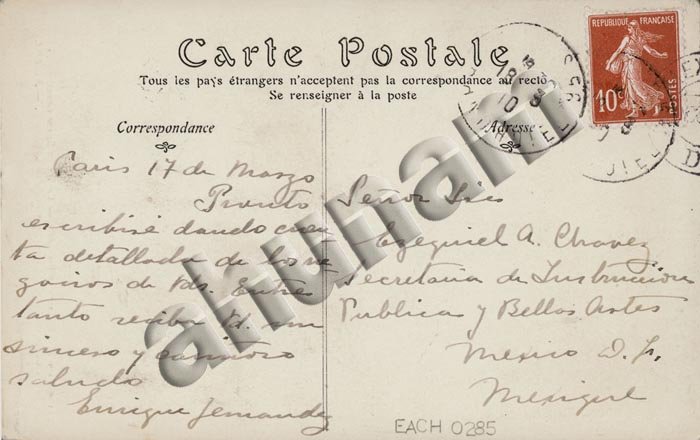 Carte Postale
Tous les pays étrangers n'acceptent pas la correspondance au recto
Se renseigner à la poste
RÉPUBLIQUE FRANÇAISE
10c
POSTES
Correspondance
Paris 17 de Marzo
Pronto
escribiré dando cuen
ta detallada de los ne
gocios de Uds. Entre
tanto reciba Ud. un
sincero y cariñoso
saludo
Enrique Fernandez
Adresse
Señor Lic
Ezequiel A. Chavez
Secretaria de Instruccion
Publica y Bellas Artes
Mexico D. F.
Mexique
EACH 0285
ahunam